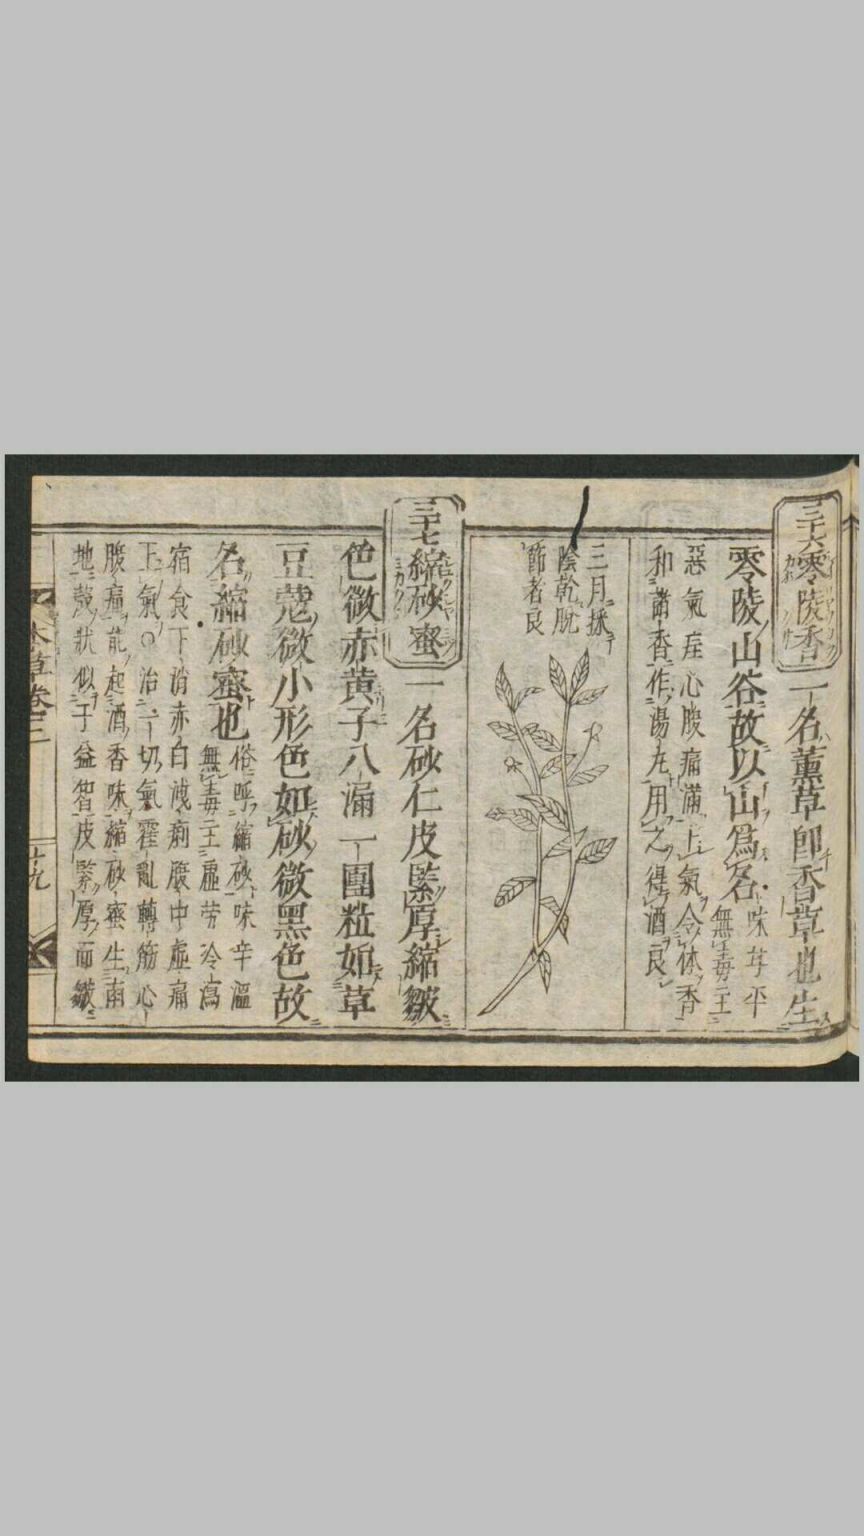 三十六零陵香
一名薫草即香草也生
零陵山谷故以山為名
味甘平
無毒主
惡氣疰心腹痛滿上氣令体香
和諸香作湯丸用之得酒良
三月採
陰乾脫
節者良
三十七縮砂蜜
一名砂仁皮緊厚縮皺
色微赤黄子八漏一團粒如草
豆蔻微小形色如砂微黑色故
名縮砂蜜也
俗呼縮砂味辛溫
無毒主虛労冷瀉
宿食下消赤白洩痢腹中虛痛
下氣〇治一切氣霍亂轉筋心
腹痛能起酒香味縮砂蜜生南
地蔻狀似子益智皮緊厚而皺
本草卷三
十九